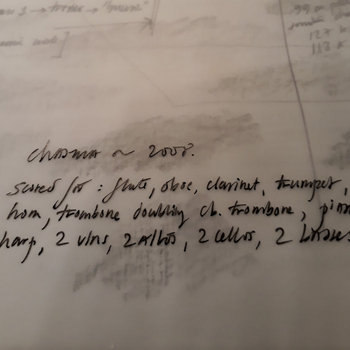 → "
99 or
127 k
118 k
chasma ~ 2008.
scored for : flute, oboe, clarinet, trumpet,
horn, trombone doubling cb. trombone, pian
harp, 2 vlns, 2 altos, 2 cellos, 2 basses